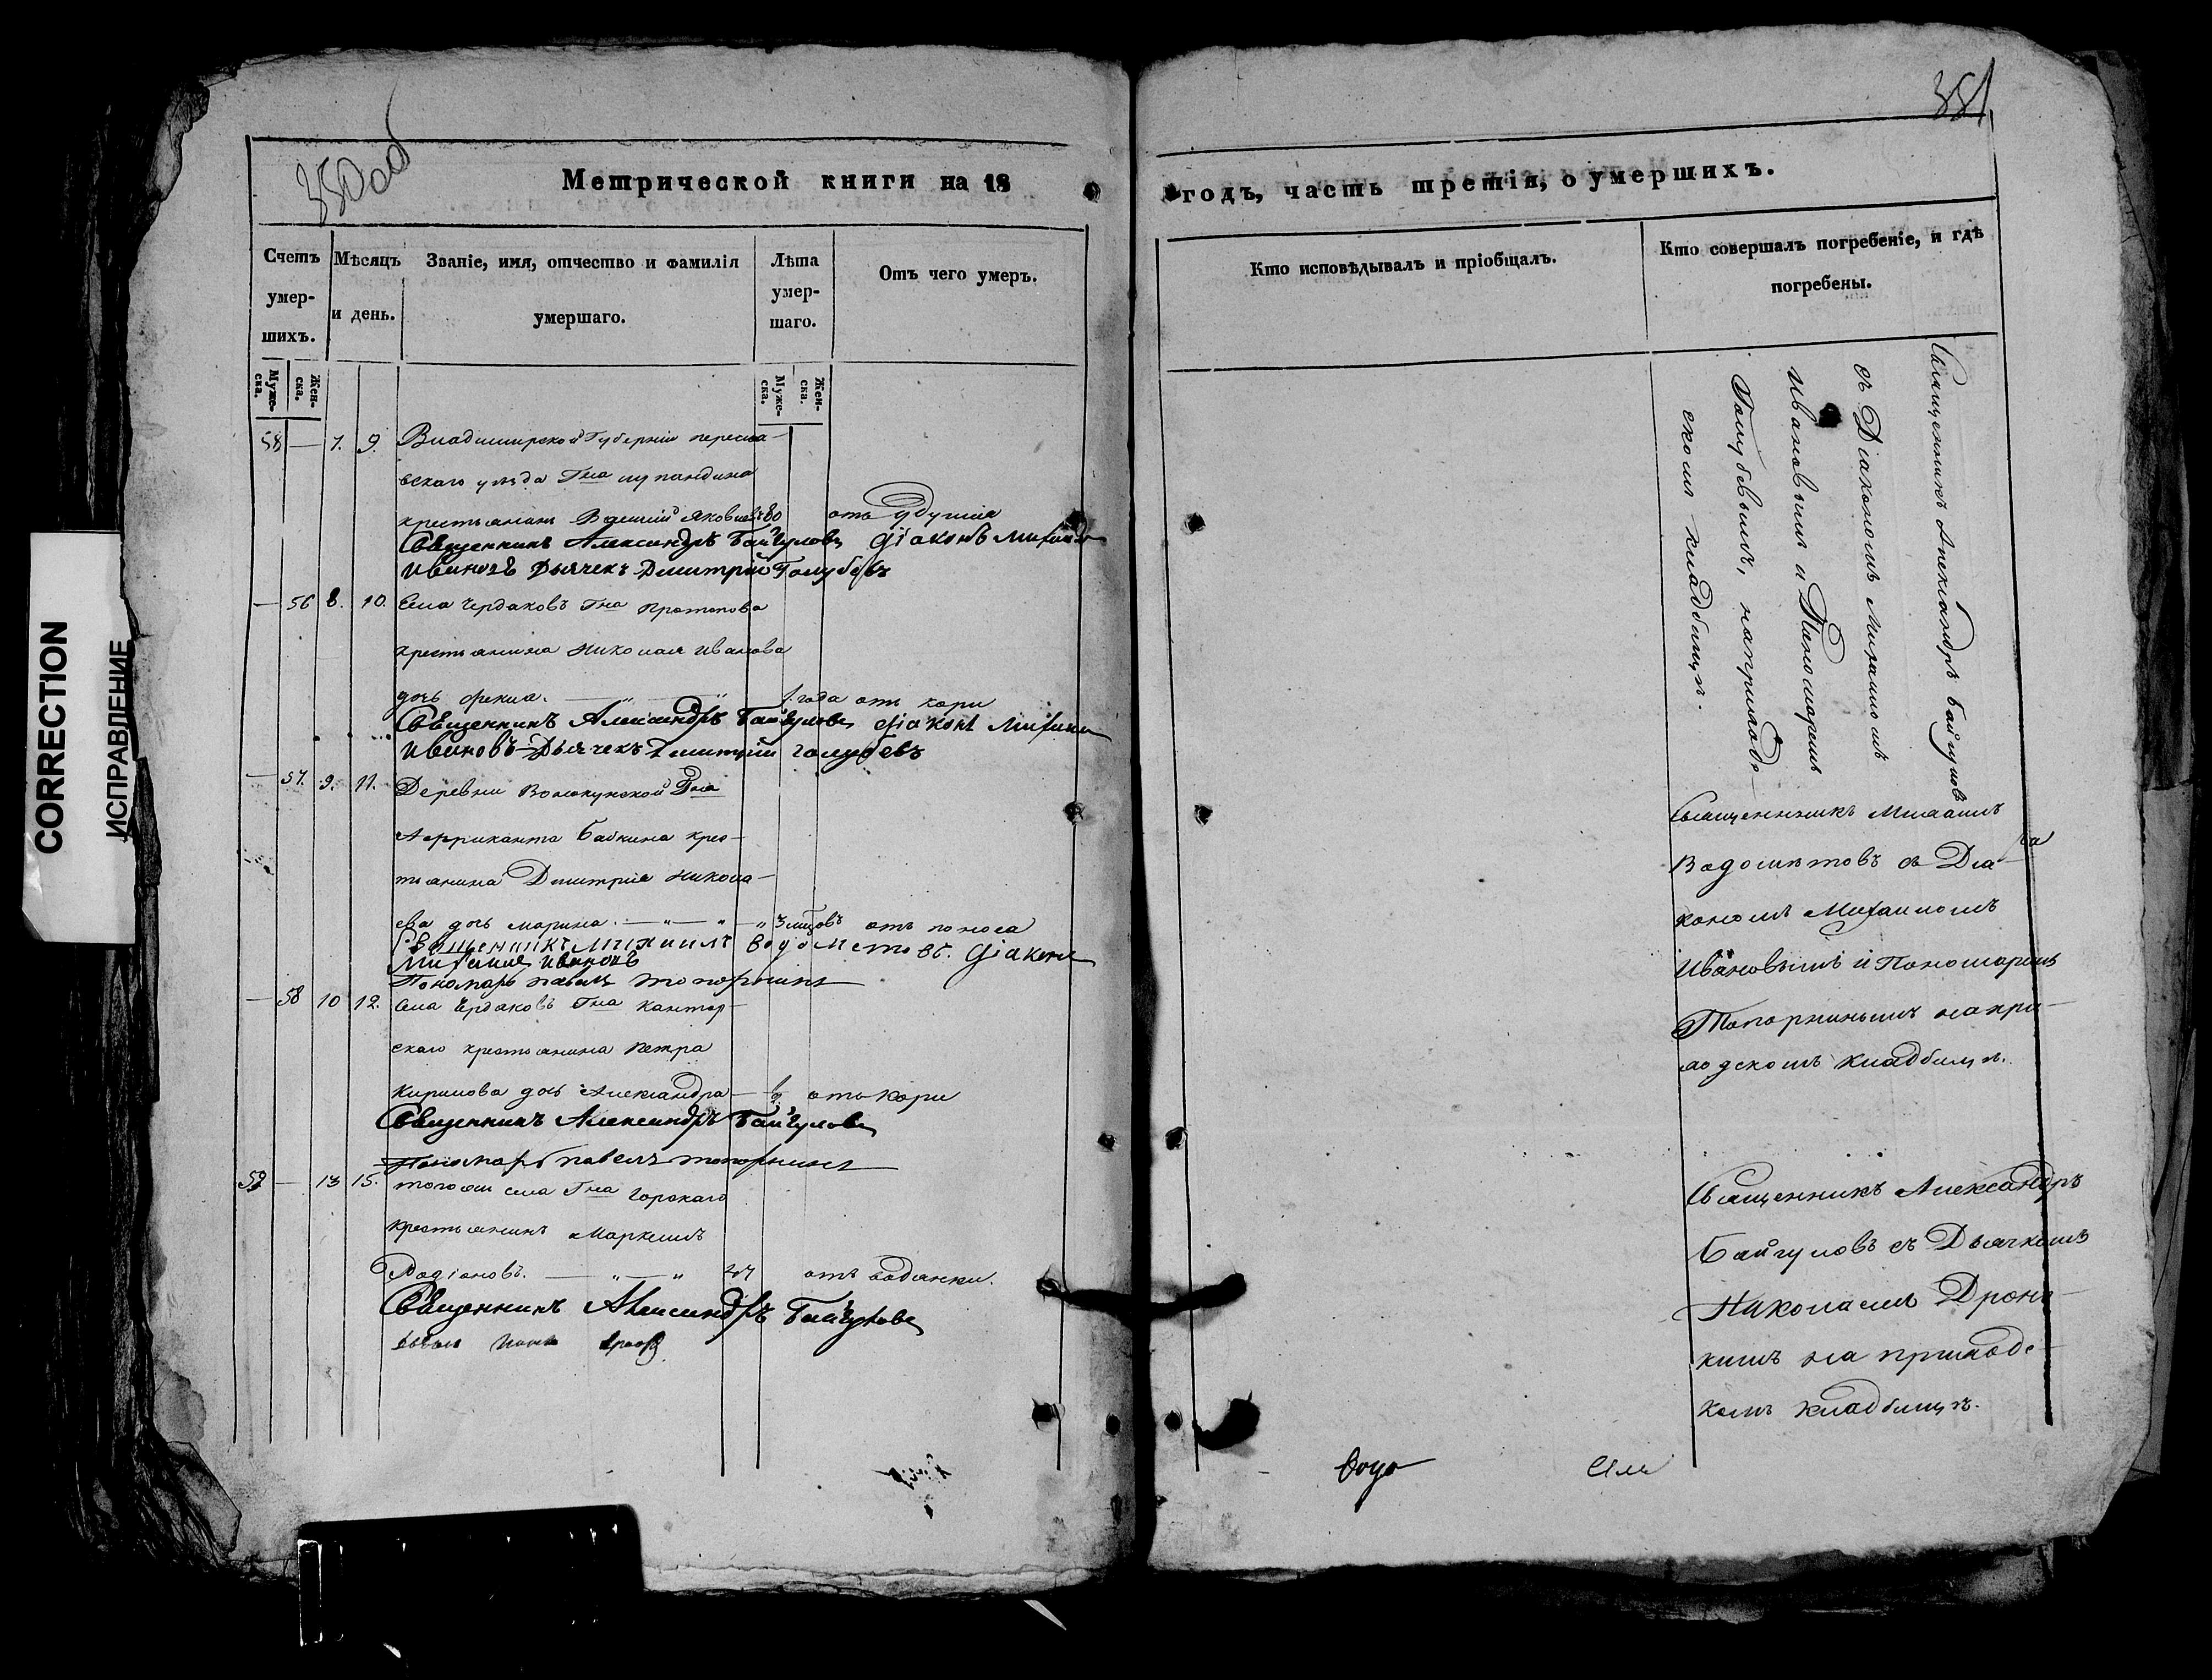 CORRECTION
ИСПРАВЛЕНИЕ
350 об
Метрической книги на 18
Счетъ умер-шихъ.
Мѣсяцъ и день.
Званіе, имя, отчество и фамилія умершаго.
Лѣта умер-шаго.
Отъ чего умеръ.
Муже-ска.
Жен-ска.
Муже-ска.
Жен-ска.
58 — 7. 9. Владимирской Губерніи пересла-
вскаго уѣзда Гна
крестьянинъ Василій Яковлевъ 80 отъ удушія
Священникъ Александръ Байгуловъ діаконъ Михаилъ
Ивановъ Дьячекъ Дмитрій Голубевъ
— 56 8. 10. Села Чердаковъ Гна Протопова
крестьянина Николая Иванова
дочь Фекла. — „ — „ 1 года отъ кори
Священникъ Александръ Байгуловъ діаконъ Михаилъ
Ивановъ Дьячекъ Дмитрій Голубевъ
— 57. 9. 11. Деревни Волокунской Гна
Африканта Бабкина крес-
тьянина Дмитрія Никола-
ева дочь Марина. — „ — „ — „ 3 мцовъ отъ поноса
Священникъ Михаилъ Водолетовъ. діаконъ
Михаилъ Ивановъ
Пономарь Павелъ Топорнинъ
— 58 10 12. Села Чердаковъ Гна Кантор-
скаго крестьянина Петра
Кирилова дочь Александра — отъ кори
Священникъ Александръ Байгуловъ
Пономарь Павелъ Топорнинъ
59 — 13 15. того же села Гна Горскаго
крестьянинъ Маркелъ
Родіоновъ. — „ — „ отъ водянки.
Священникъ Александръ Байгуловъ
351
годъ, часть третія, о умершихъ.
Кто исповѣдывалъ и пріобщалъ.
Кто совершалъ погребеніе, и гдѣ погребены.
Священникъ Александръ Байгуловъ
съ Діакономъ Михаиломъ
Ивановымъ и Пономаремъ
Голубевымъ, на приходс-
комъ кладбищѣ.
Священникъ Михаилъ
Водолетовъ съ Діа-
кономъ Михаиломъ
Ивановымъ и Пономаремъ
Топорнинымъ на при-
ходскомъ кладбищѣ.
Священникъ Александръ
Байгуловъ съ Дьячкомъ
Николаемъ
на приходс-
комъ кладбищѣ.